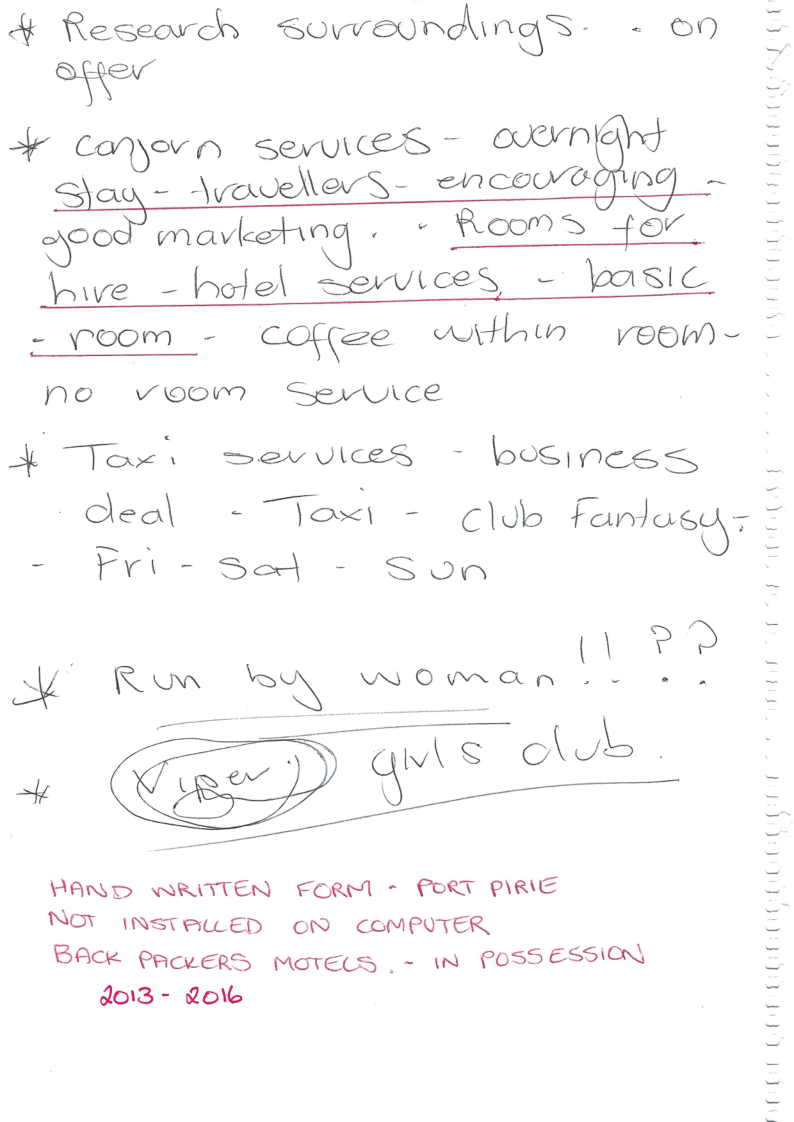 * Research surroundings. - on
offer
* canjorn services - overnight
stay - travellers - encouraging -
good marketing. - Rooms for
hire - hotel services, - basic
- room - coffee within room -
no room service
* Taxi services - business
deal - Taxi - club Fantasy -
- Fri - Sat - Sun
* Run by woman!! ??
* Viper. girls club.
HAND WRITTEN FORM - PORT PIRIE
NOT INSTALLED ON COMPUTER
BACK PACKERS MOTELS. - IN POSSESSION
2013 - 2016